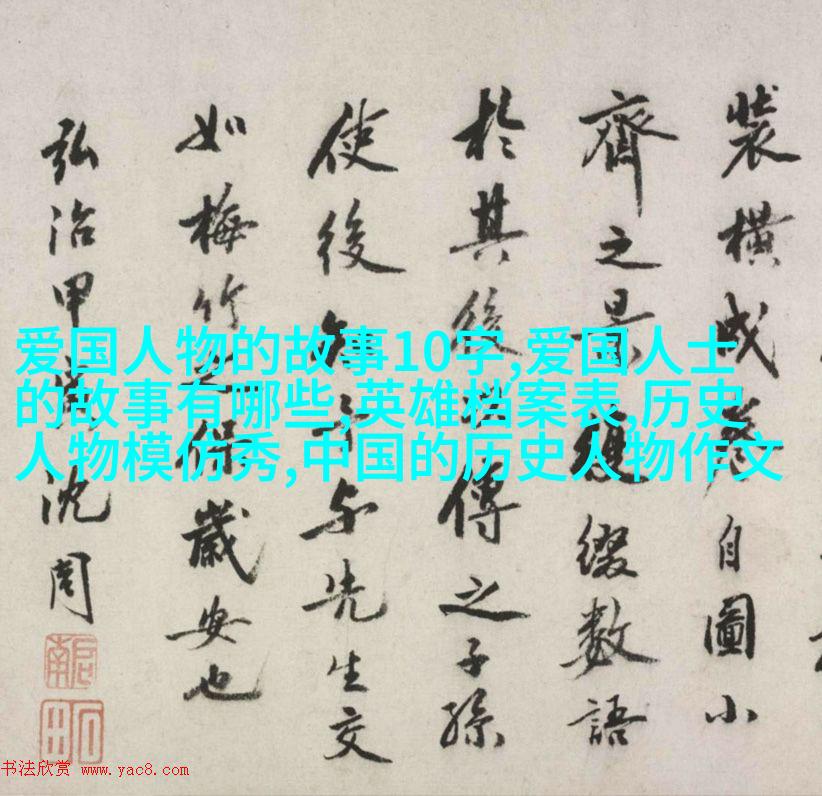 爱国人物的故事10字,爱国人士
的故事有哪些,英雄档案表,历史
人物模仿秀,中国的历史人物作文
裝橫成卷自圖小
齊之景綴數語
於其後傳之子孫
使後與先生交
如梅竹之保歲安也
弘治甲沈周
啓南
石田
书法欣赏 www.yac8.com